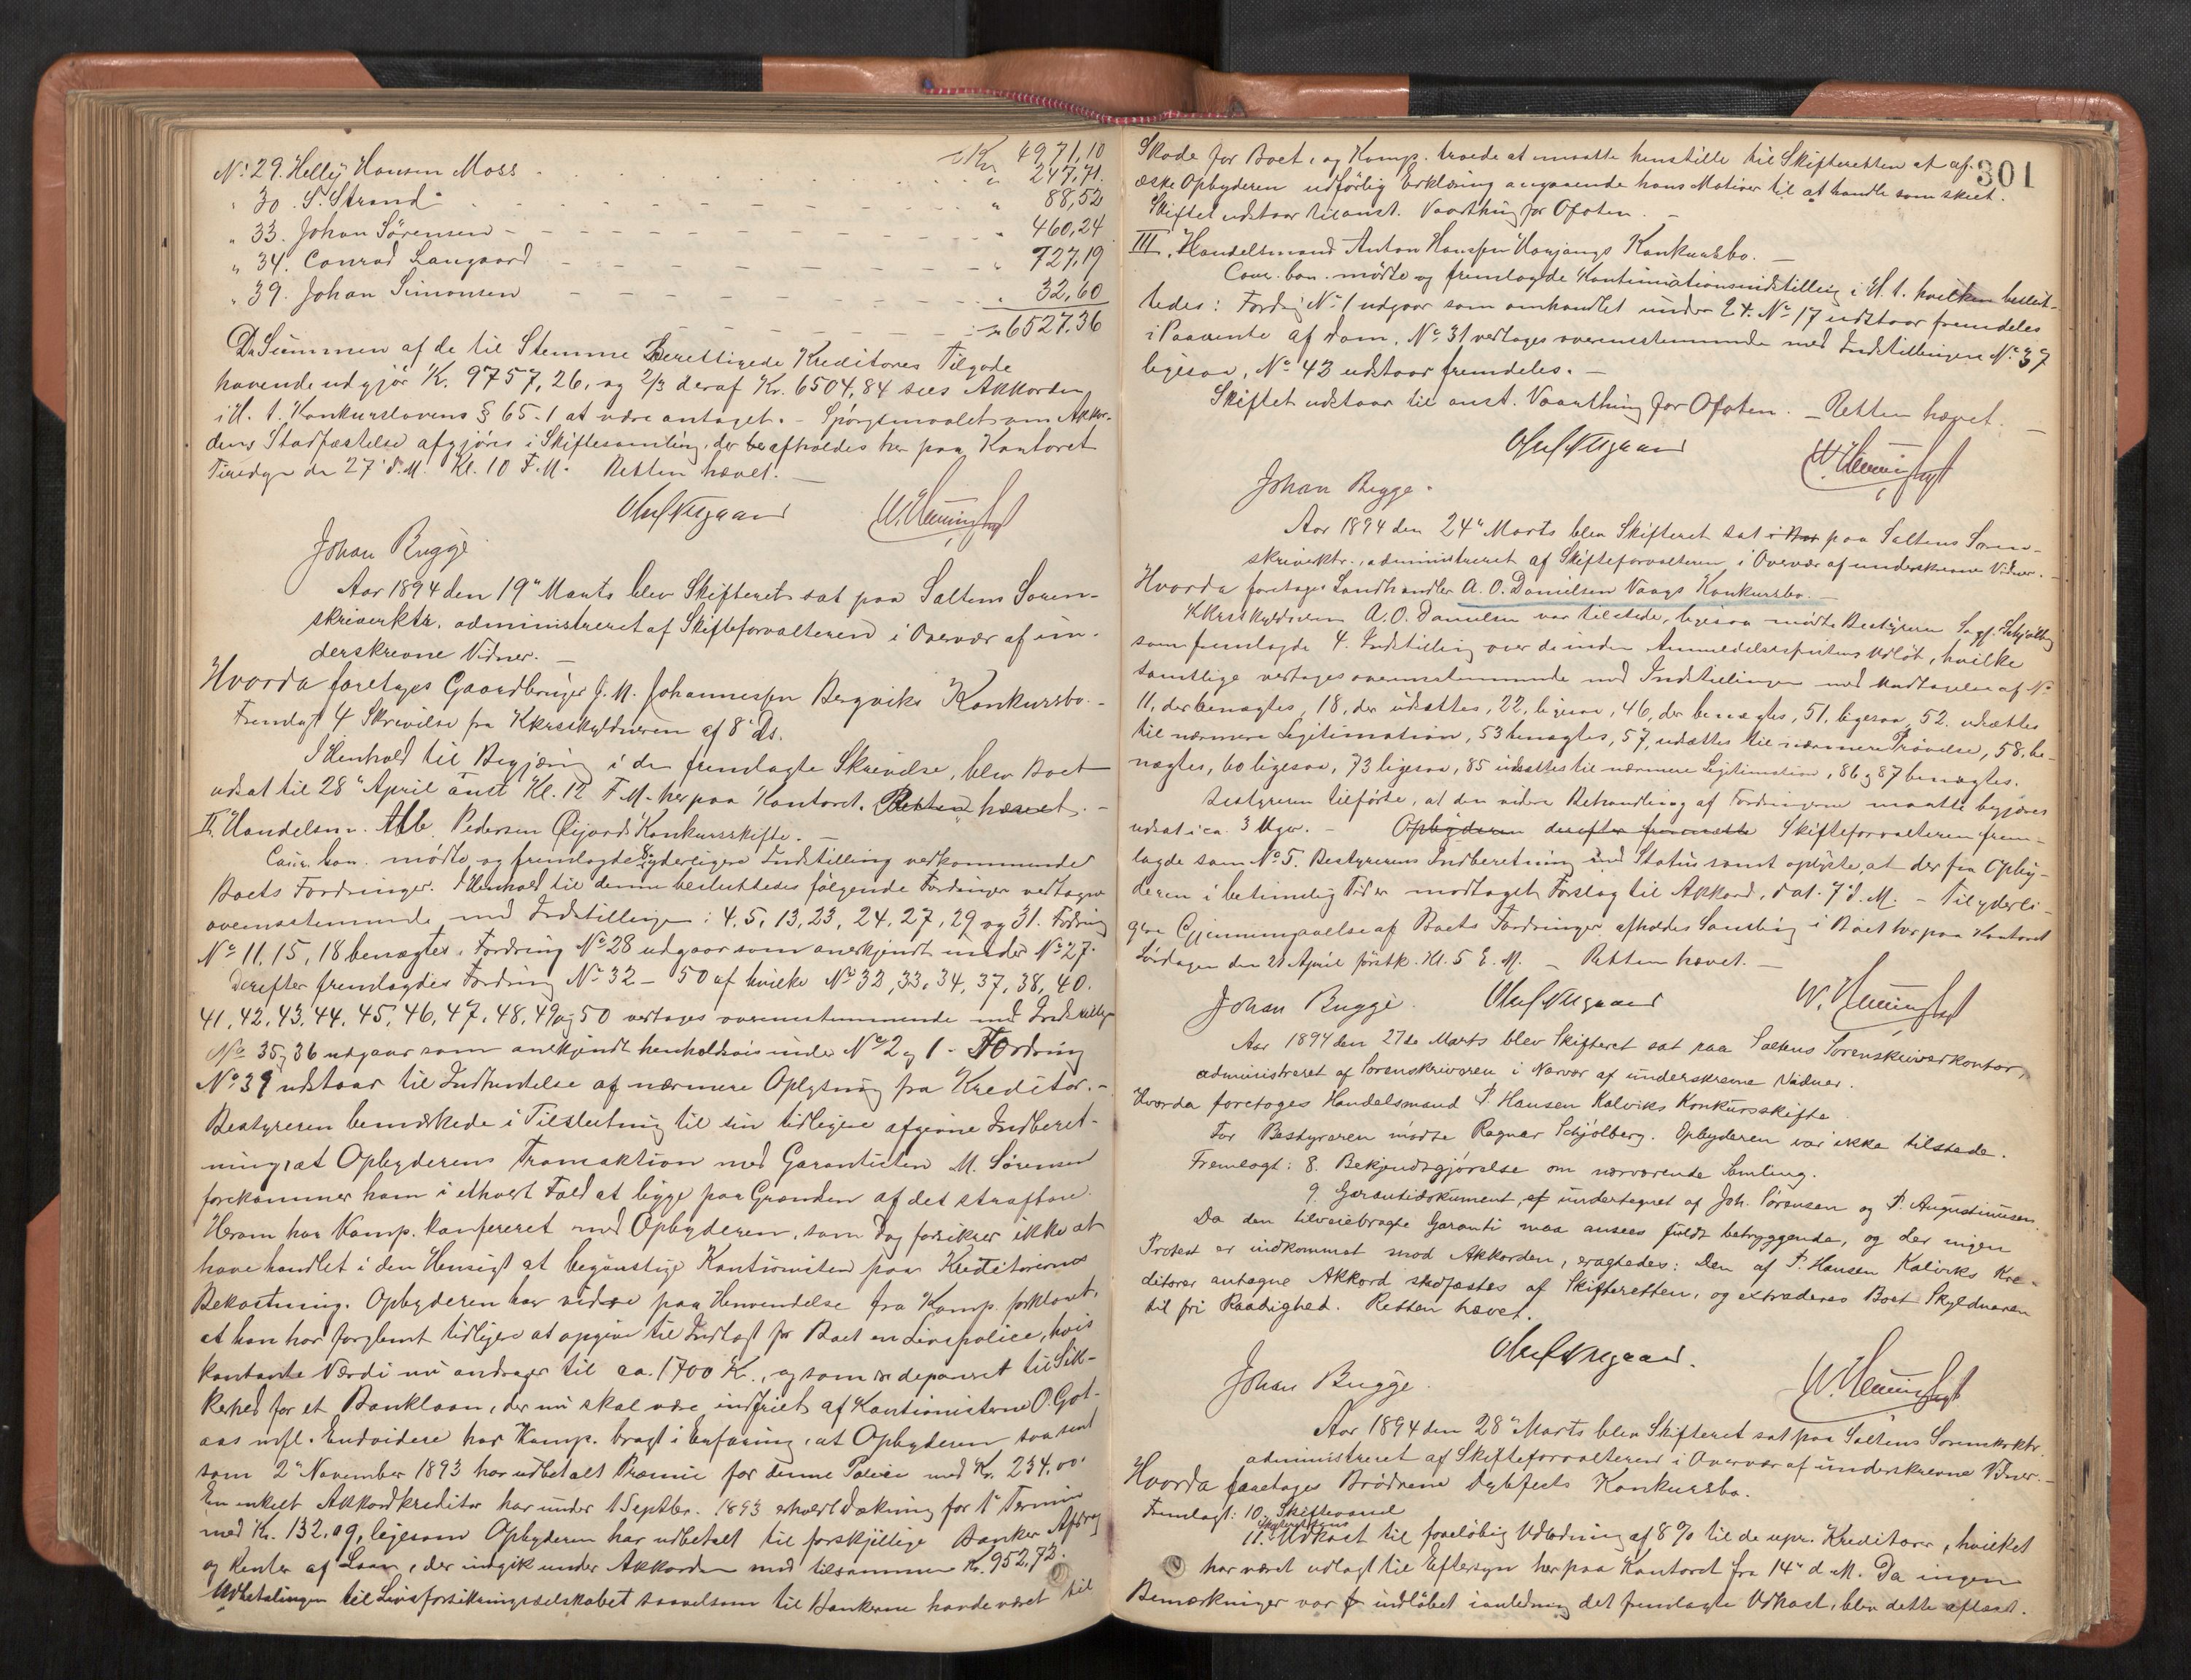 Kr 4971,10
No 29. Helly Hansen Moss . . . . " 247,71.
" 30. S. Strand - - - - " 88,52
" 33. Johan Sörensen - - - - " 460,24
" 34. Conrad Langaard - - - - " 727,19
" 39. Johan Simonsen - - - - " 32,60
6527,36
Da Summen af de til Stemme berettigede Kreditores Tilgode
havende udgjør Kr. 9757,26, og 2/3 deraf Kr. 6504,84 sees Akkorden
i H. t. Konkurslovens § 65.1 at være antaget. - Spørgsmaalet om Akkor-
dens Stadfæstelse afgjøres i Skiftesamling, der afholdes her paa Kontoret
Tirsdag den 27' d.M. Kl. 10 F.M. Retten hævet. -
Johan Bugge
Aar 1894 den 19" Marts blev Skifteret sat paa Saltens Soren-
skriverktr. administreret af Skifteforvalteren i Overvær af un-
derskrevne Vidner. -
Hvorda foretages Gaardbruger J. M. Johannessen Bergviks Konkursbo. -
Fremlagt 4 Skrivelse fra Kkrsskyldneren af 8' ds.
I Henhold til Begjæring i den fremlagte Skrivelse, blev Boet
udsat til 28" April anst. Kl. 12 F.M. her paa Kontoret. Retten hævet. -
II. Handelsm. Alb. Pedersen Øijords Konkursskifte. -
Cour. bon. mødte og fremlagde yderligere Indstilling vedkommende
Boets Fordringer. I Henhold til denne besluttedes følgende Fordringer vedtagne
overensstemmende med Indstillingen: 4, 5, 13, 23, 24, 27, 29 og 31. Fordring
No 11, 15, 18 benægtes. Fordring No 28 udgaar som anerkjendt under No 27.
Derefter fremlagdes Fordring No 32 - 50 af hvilke No 32, 33, 34, 37, 38, 40.
41, 42, 43, 44, 45, 46, 47, 48, 49 og 50 vedtages overensstemmende med Indstillg
No 35 og 36 udgaar som anerkjendt henholdsvis under No 2 og 1. - Fordring
No 39 udstaar til Indhentelse af nærmere Oplysning fra Kreditor. -
Bestyreren bemærkede i Tilslutning til sin tidligere afgivne Indberet-
ning, at Opbyderens Transaktion med Garantisten M. Sörensen
forekommer ham i ethvert Fald at ligge paa Grænden af det strafbare.
Herom har Komp. konfereret med Opbyderen, som dog forsikrer ikke at
have handlet i den Hensigt at begunstige Kautionisten paa Kreditorernes
Bekostning. Opbyderen har videre paa Henvendelse fra Komp. forklaret,
at han har forglemt tidligere at opgive til Indtægt for Boet en Livspolice, hvis
kontante Værdi nu andrager til ca. 1700 Kr., og som er deponeret til Sik-
kerhed for et Banklaan, der nu skal være indfriet af Kautionisterne O. Got-
aas mfl. Endvidere har Komp. bragt i Erfaring, at Opbyderen saa sent
som 2" November 1893 har udbetalt Præmie for denne Police med Kr. 234,00.
En enkelt Akkordkreditor har under 1 Septbr. 1893 erholdt Dækning for 1' Termin
med Kr. 132,09, ligesom Opbyderen har udbetalt til forskjellige Banker Afdrag
og Renter af Laan, der indgik under Akkorden med tilsammen Kr. 952,73.
Udbetalingen til Livsforsikringsselskabet saavelsom til Bankerne havde været til
301
Skade for Boet, og Komp. troede at maatte henstille til Skifteretten at af-
æske Opbyderen udførlig Erklæring angaaende hans Motiver til at handle som skeet.
Skiftet udstaar til anst. Vaarthing for Ofoten. -
III. Handelsmand Anton Hansen Harjangs Konkursbo. -
Cour. bon. mødte og fremlagde Kontinuationsindstilling i H. t. hvilken beslut-
tedes: Fordrg No 1 udgaar som omhandlet under 24. No 17 udstaar fremdeles
i Paavente af Dom. No 31 vedtages overensstemmende med Indstillingen No 37
ligesaa, No 43 udstaar fremdeles. -
Skiftet udstaar til anst. Vaarthing for Ofoten. - Retten hævet. -
Johan Bugge.
Aar 1894 den 24" Marts blev Skifteret sat paa Saltens Soren-
skriverktr., administreret af Skifteforvalteren i Overvær af underskrevne Vidner. -
Hvorda foretages Landhandler A. O. Danielsen Vaags Konkursbo. -
Kkrsskyldneren A. O. Danielsen var tilstede, ligesaa mødte Bestyreren Sagf. Schjølberg
som fremlagde 4. Indstilling over de inden Anmeldelsesfristens Udløb, hvilke
samtlige vedtages overensstemmende med Indstillingen med Undtagelse af No
11, der benægtes, 18, der udsættes, 22, ligesaa, 46, der benægtes, 51, ligesaa, 52. udsættes
til nærmere Legitimation, 53 benægtes, 57, udsættes til nærmere Prøvelse, 58, be-
nægtes, 60 ligesaa, 73 ligesaa, 85 udsættes til nærmere Legitimation, 86 og 87 benægtes.
Bestyreren tilførte, at den videre Behandling af Fordringerne maatte begjæres
udsat i ca. 3 Uger. - Opbyderen derefter fremsatte Skifteforvalteren frem-
lagde som No 5. Bestyrerens Indberetning med Status samt oplyste, at der fra Opby-
deren i betimelig Tid er modtaget Forslag til Akkord, dat. 7' d. M. - Til yderli-
gere Gjennemgaaelse af Boets Fordringer afholdes Samling i Boet her paa Kontoret
Lördagen den 21 April förstk. Kl. 5 E. M. - Retten hævet. -
Johan Bugge.
Aar 1894 den 27de Marts blev Skifteret sat paa Saltens Sorenskriverkontor,
administreret af Sorenskriveren i Nærvær af underskrevne Vidner.
Hvorda foretages Handelsmand P. Hansen Kalviks Konkursskifte.
For Bestyreren mødte Ragnar Schjølberg. Opbyderen var ikke tilstede.
Fremlagt: 8. Bekjendtgjørelse om nærværende Samling.
9. Garantidokument, af undertegnet af Joh. Sørensen og P. Augustinusen.
Da den tilveiebragte Garanti maa ansees fuldt betryggende, og der ingen
Protest er indkommet mod Akkorden, eragtedes: Den af P. Hansen Kalviks Kre-
ditorer antagne Akkord stadfæstes af Skifteretten, og extraderes Boet Skyldneren
til fri Raadighed. Retten hævet.
Johan Bugge.
Aar 1894 den 28" Marts blev Skifteret sat paa Saltens Sorenskrktr.
administreret af Skifteforvalteren i Overvær af underskrevne Vidner. -
Hvorda foretages Brødrene Dybfests Konkursbo.
Fremlagt: 10. Skiftevarsel
11. Udkast til foreløbig Udlodning af 8 % til de upr. Kreditorer, hvilket
har været udlagt til Eftersyn her paa Kontoret fra 14" d. M. Da ingen
Bemærkninger var indløbet i anledning det fremlagte Udkast, blev dette oplæst.